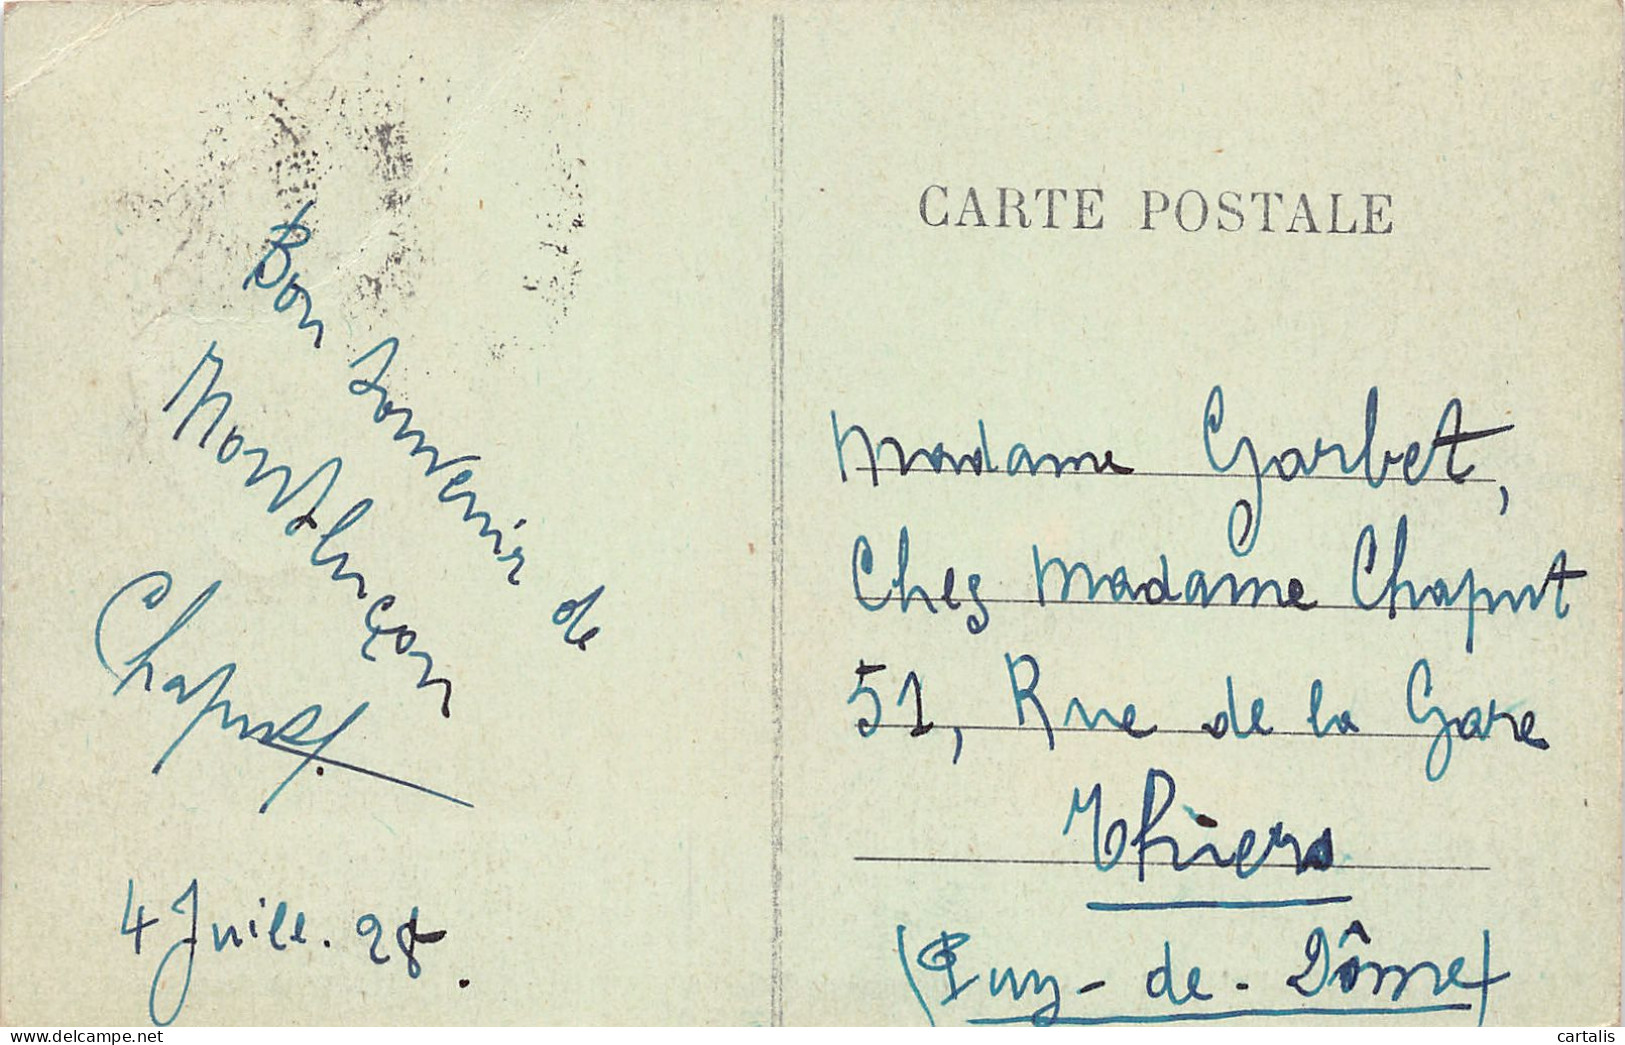 Bon souvenir de
Montluçon
Chaput.
4 Juill. 28.
CARTE POSTALE
Madame Garbet,
Chez Madame Chaput
51, Rue de la Gare
Thiers
(Puy-de-Dôme)
cartalis